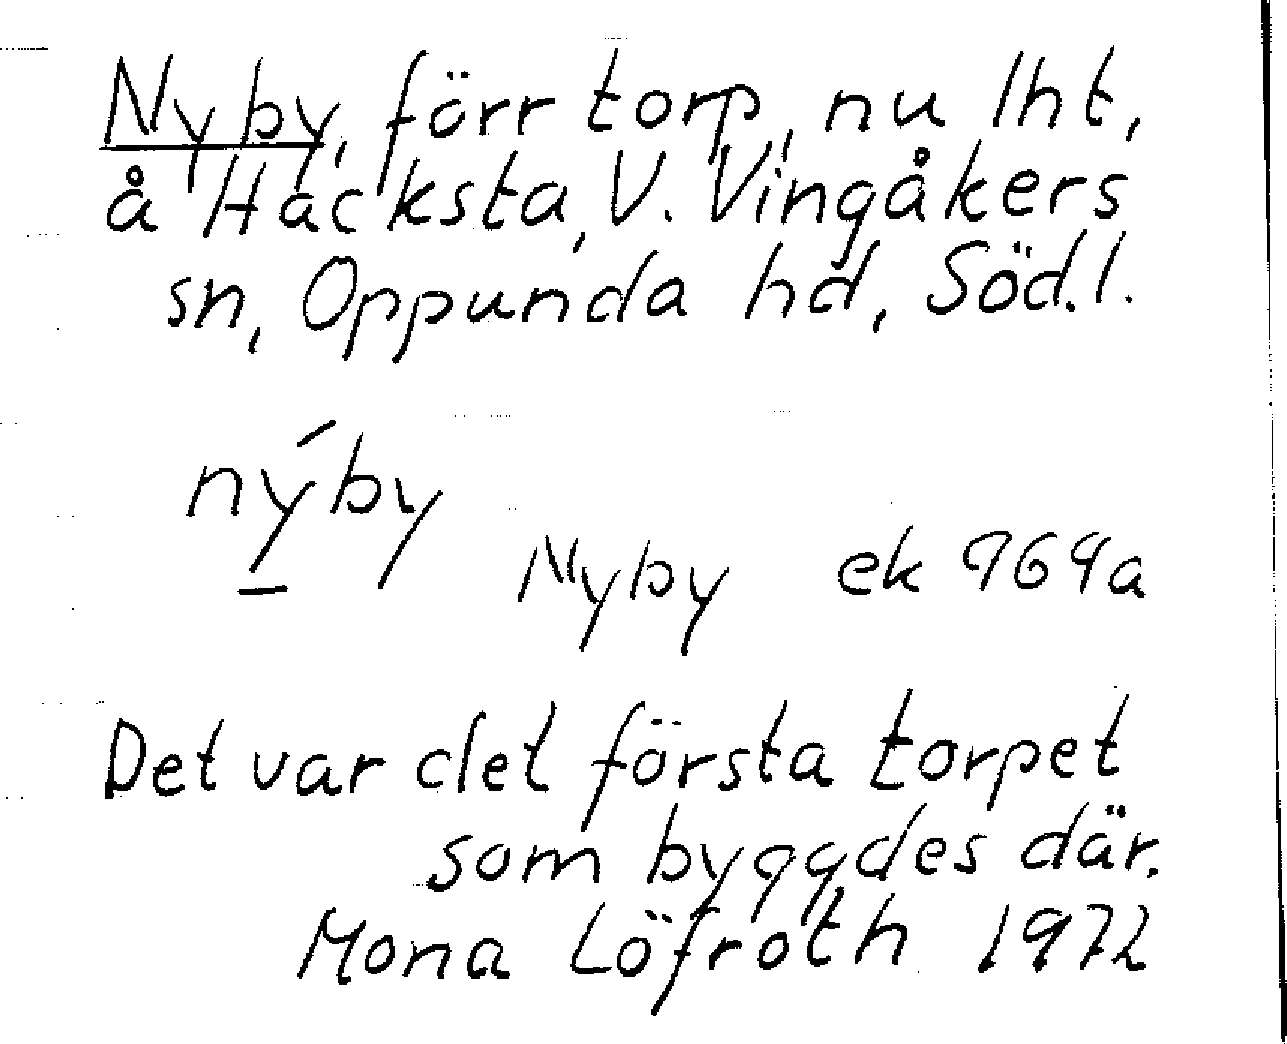 Nyby, förr torp, nu lht,
å Hacksta, V. Vingåkers
sn, Oppunda hd, Söd.l.
ný̠by
Nyby ek 969a
Det var det första torpet
som byggdes där.
Mona Löfroth 1972